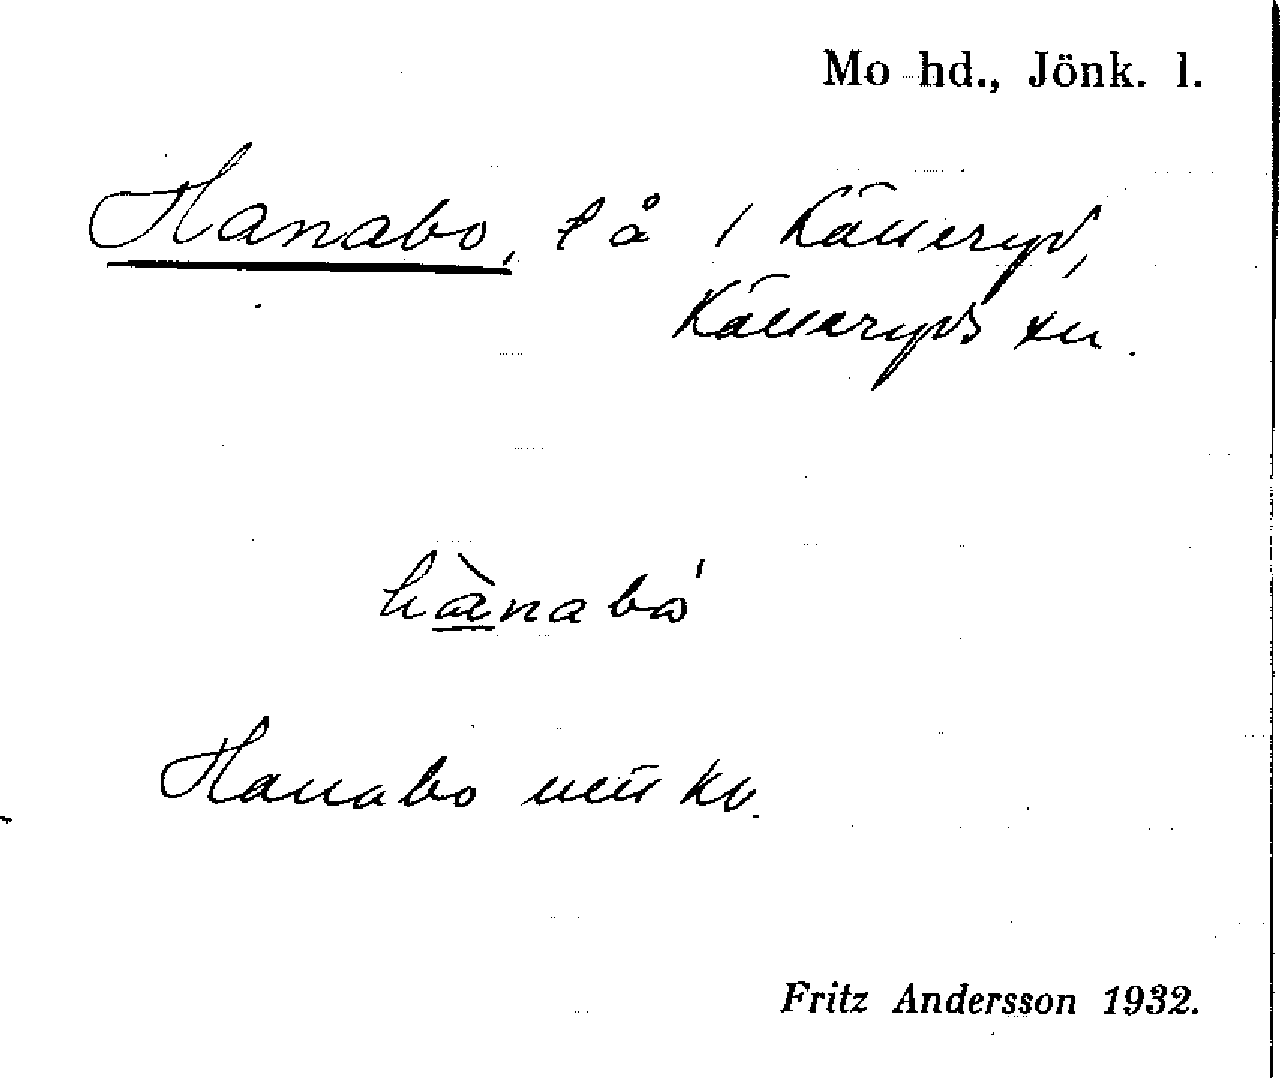 Mo hd., Jönk. l.
Hanabo, lå i Källeryd,
Källeryds sn.
hànabo'
Hanabo
Fritz Andersson 1932.